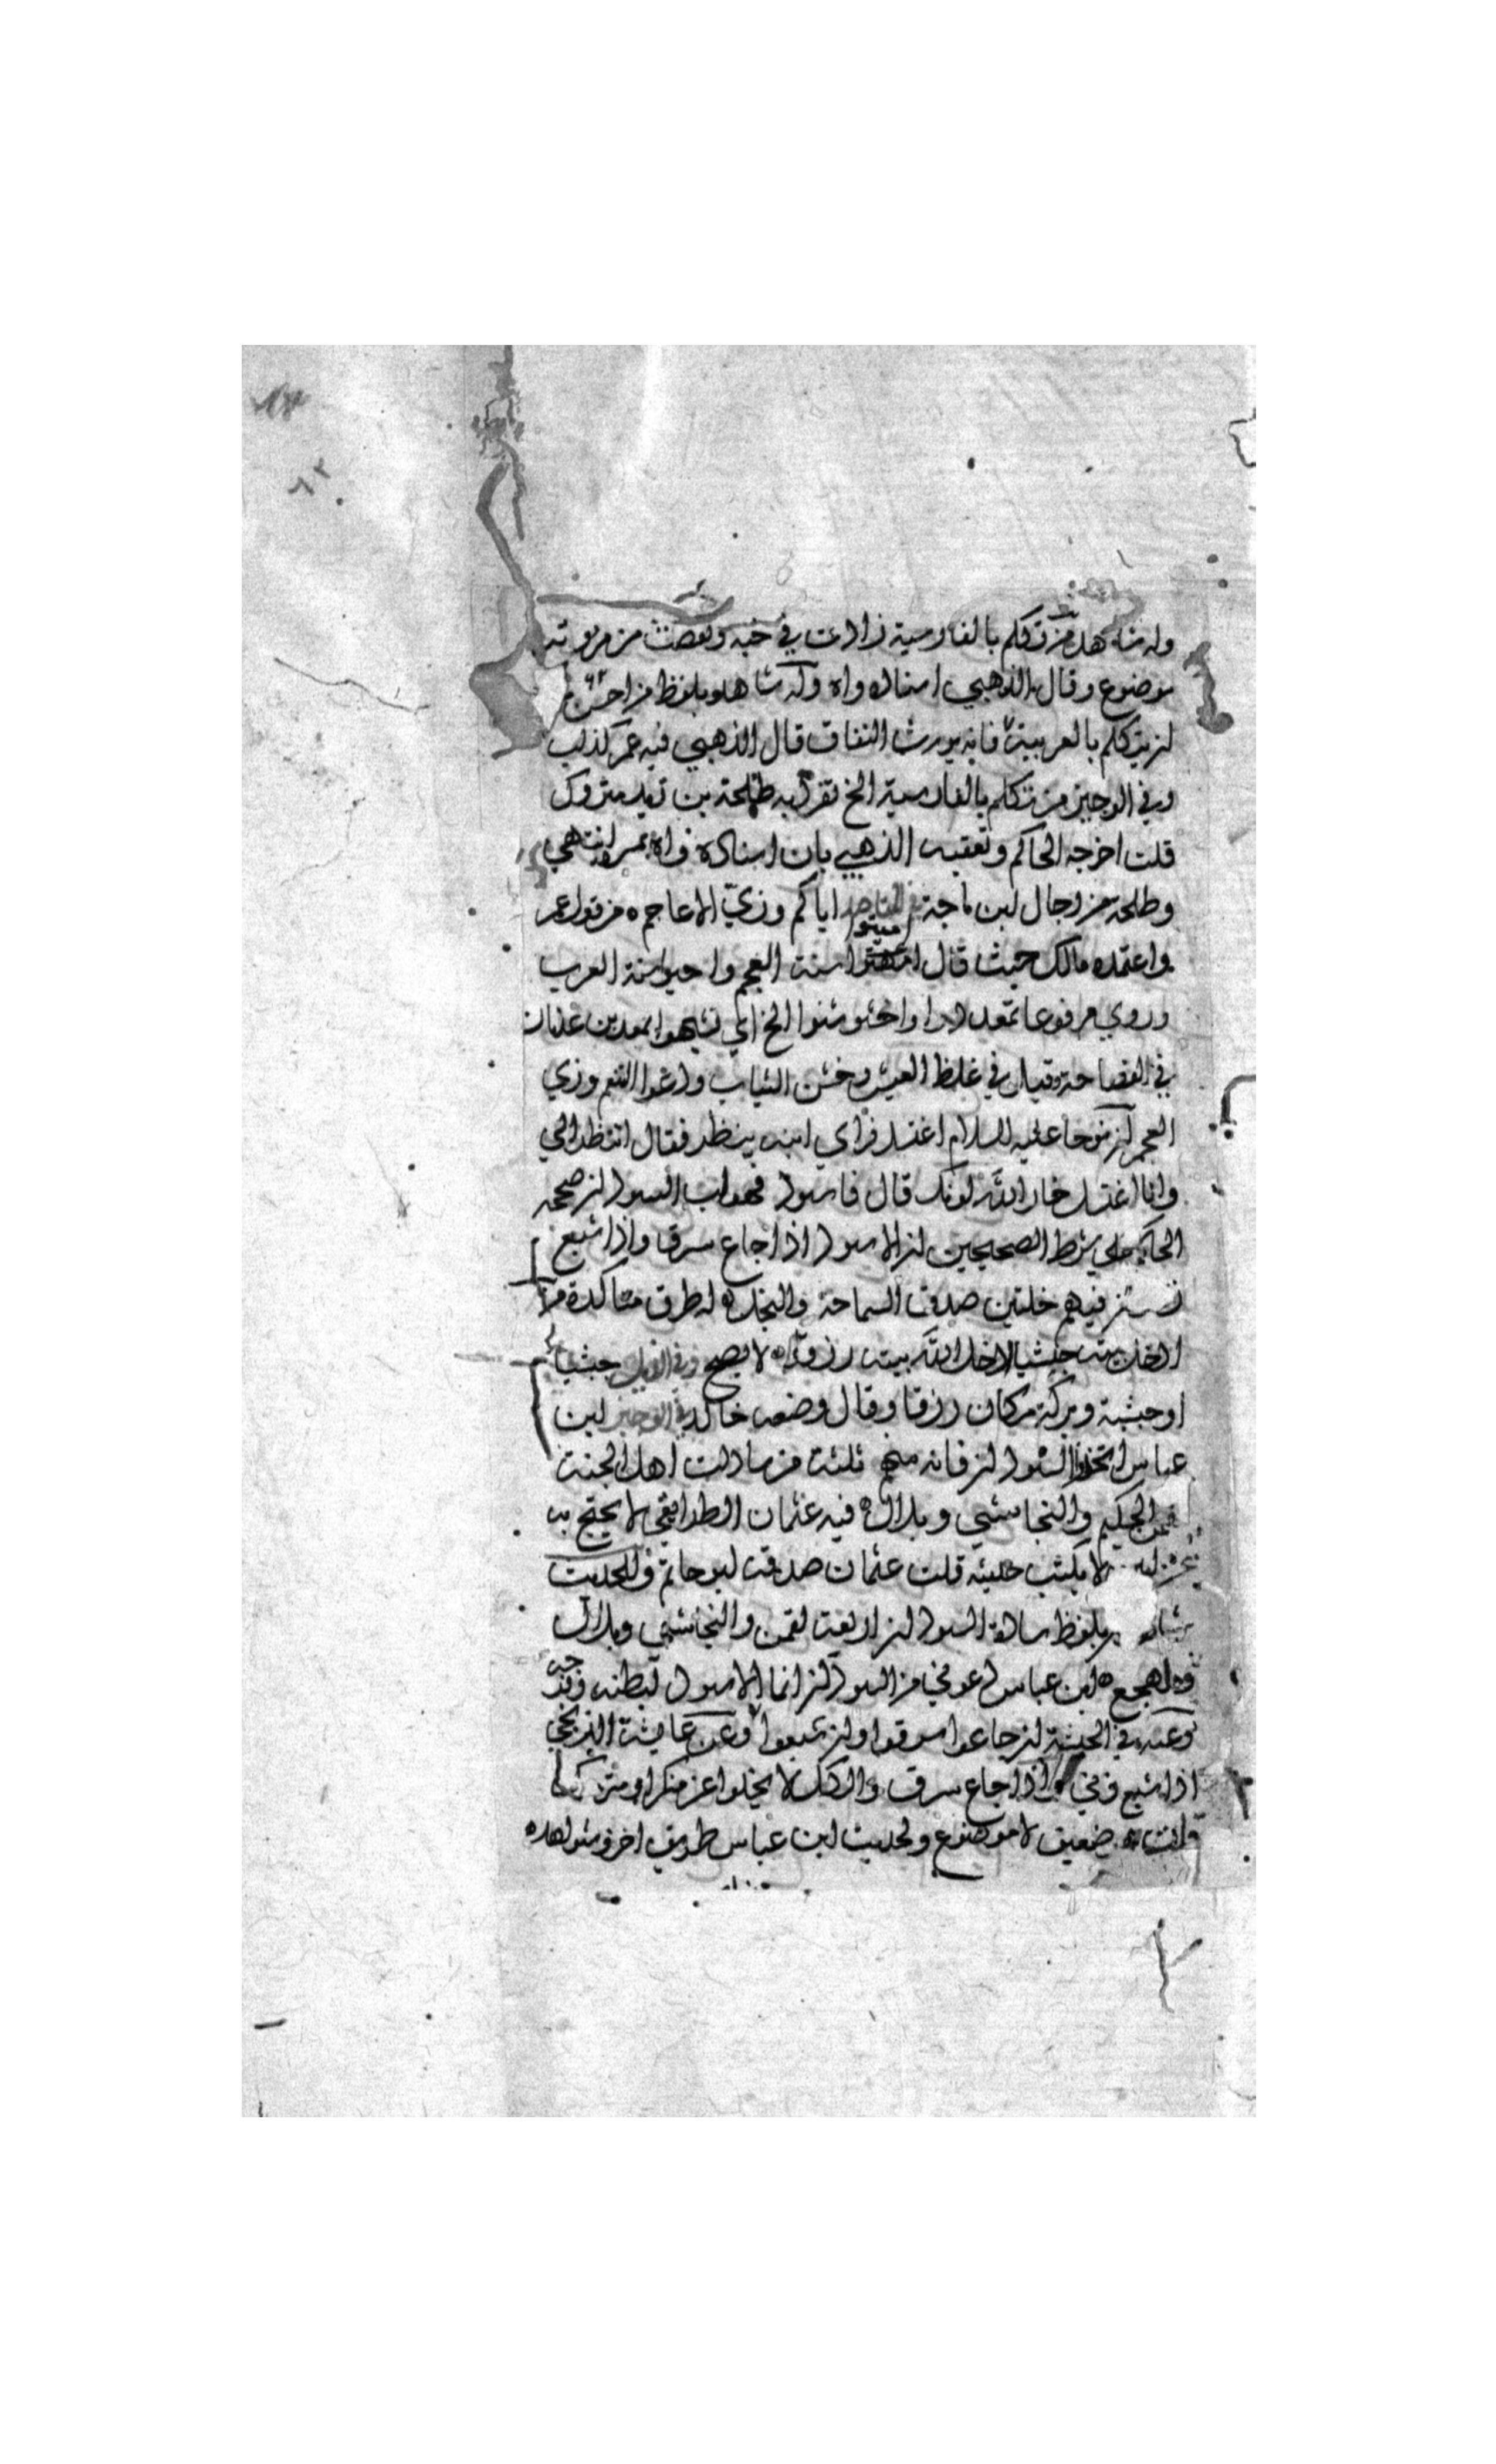 وله شاهد من تكلم بالفارسية زادت في خبه ونقصت من مروته
موضوع وقال الذهبي اسناده واه وله شاهد بلفظ من احسن
ان يتكلم بالعربية فانه يورث النفاق قال الذهبي فيه عمر كذب
وفي الوجيز من تكلم بالفارسية الخ تفرد به طلحة بن زيد متروك
قلت اخرجه الحاكم وتعقبه الذهبي بان اسناده واه بمرة انتهى
وطلحة من رجال ابن ماجة في المقاصد اياكم وزي الاعاجم من قول عمر
واعتمده مالك حيث قال اميتوا سنة العجم واحيوا سنة العرب
وروي مرفوعا تمعددوا واخشوشنوا الخ اي تشبهوا بمعد بن عدنان
في الفصاحة وقيل في غلظ العيش وخشن الثياب ودعوا التنعم وزي
العجم ان نوحا عليه السلام اغتسل فراي ابنه ينظر فقال اتنظر الي
وانا اغتسل خار الله لونك قال فاسود فهو اب السودان صححه
الحاكم على شرط الصحيحين ان الاسود اذا جاع سرق واذا شبع
زنى وان فيهم خلتين صدق السماحة والنجدة له طرق متاكدة من
ادخل بيته حبشيا ادخل الله بيته رزقا لا يصح وفي الذيل حبشيا
او حبشية وبركة مكان رزقا وقال وضعه خالد في الوجيز ابن
عباس اتخذوا السودان فان منهم ثلثة من سادات اهل الجنة
لقمن الحكيم والنجاشي وبلال فيه عثمان الطرائفي لا يحتج به
لا يكتب حديثه قلت عثمان صدقه ابو حاتم وللحديث
شاهد بلفظ سادة السودان اربعة لقمن والنجاشي وبلال
ومهجع ابن عباس دعوني من السودان انما الاسود لبطنه وفرجه
وعنه في الحبشة ان جاعوا سرقوا وان شبعوا وعن عايشة الزنجي
اذا شبع زنى واذا جاع سرق والكل لا يخلوا عن منكر او متروك
قلت ضعيف لا موضوع ولحديث ابن عباس طريق اخر وشواهده